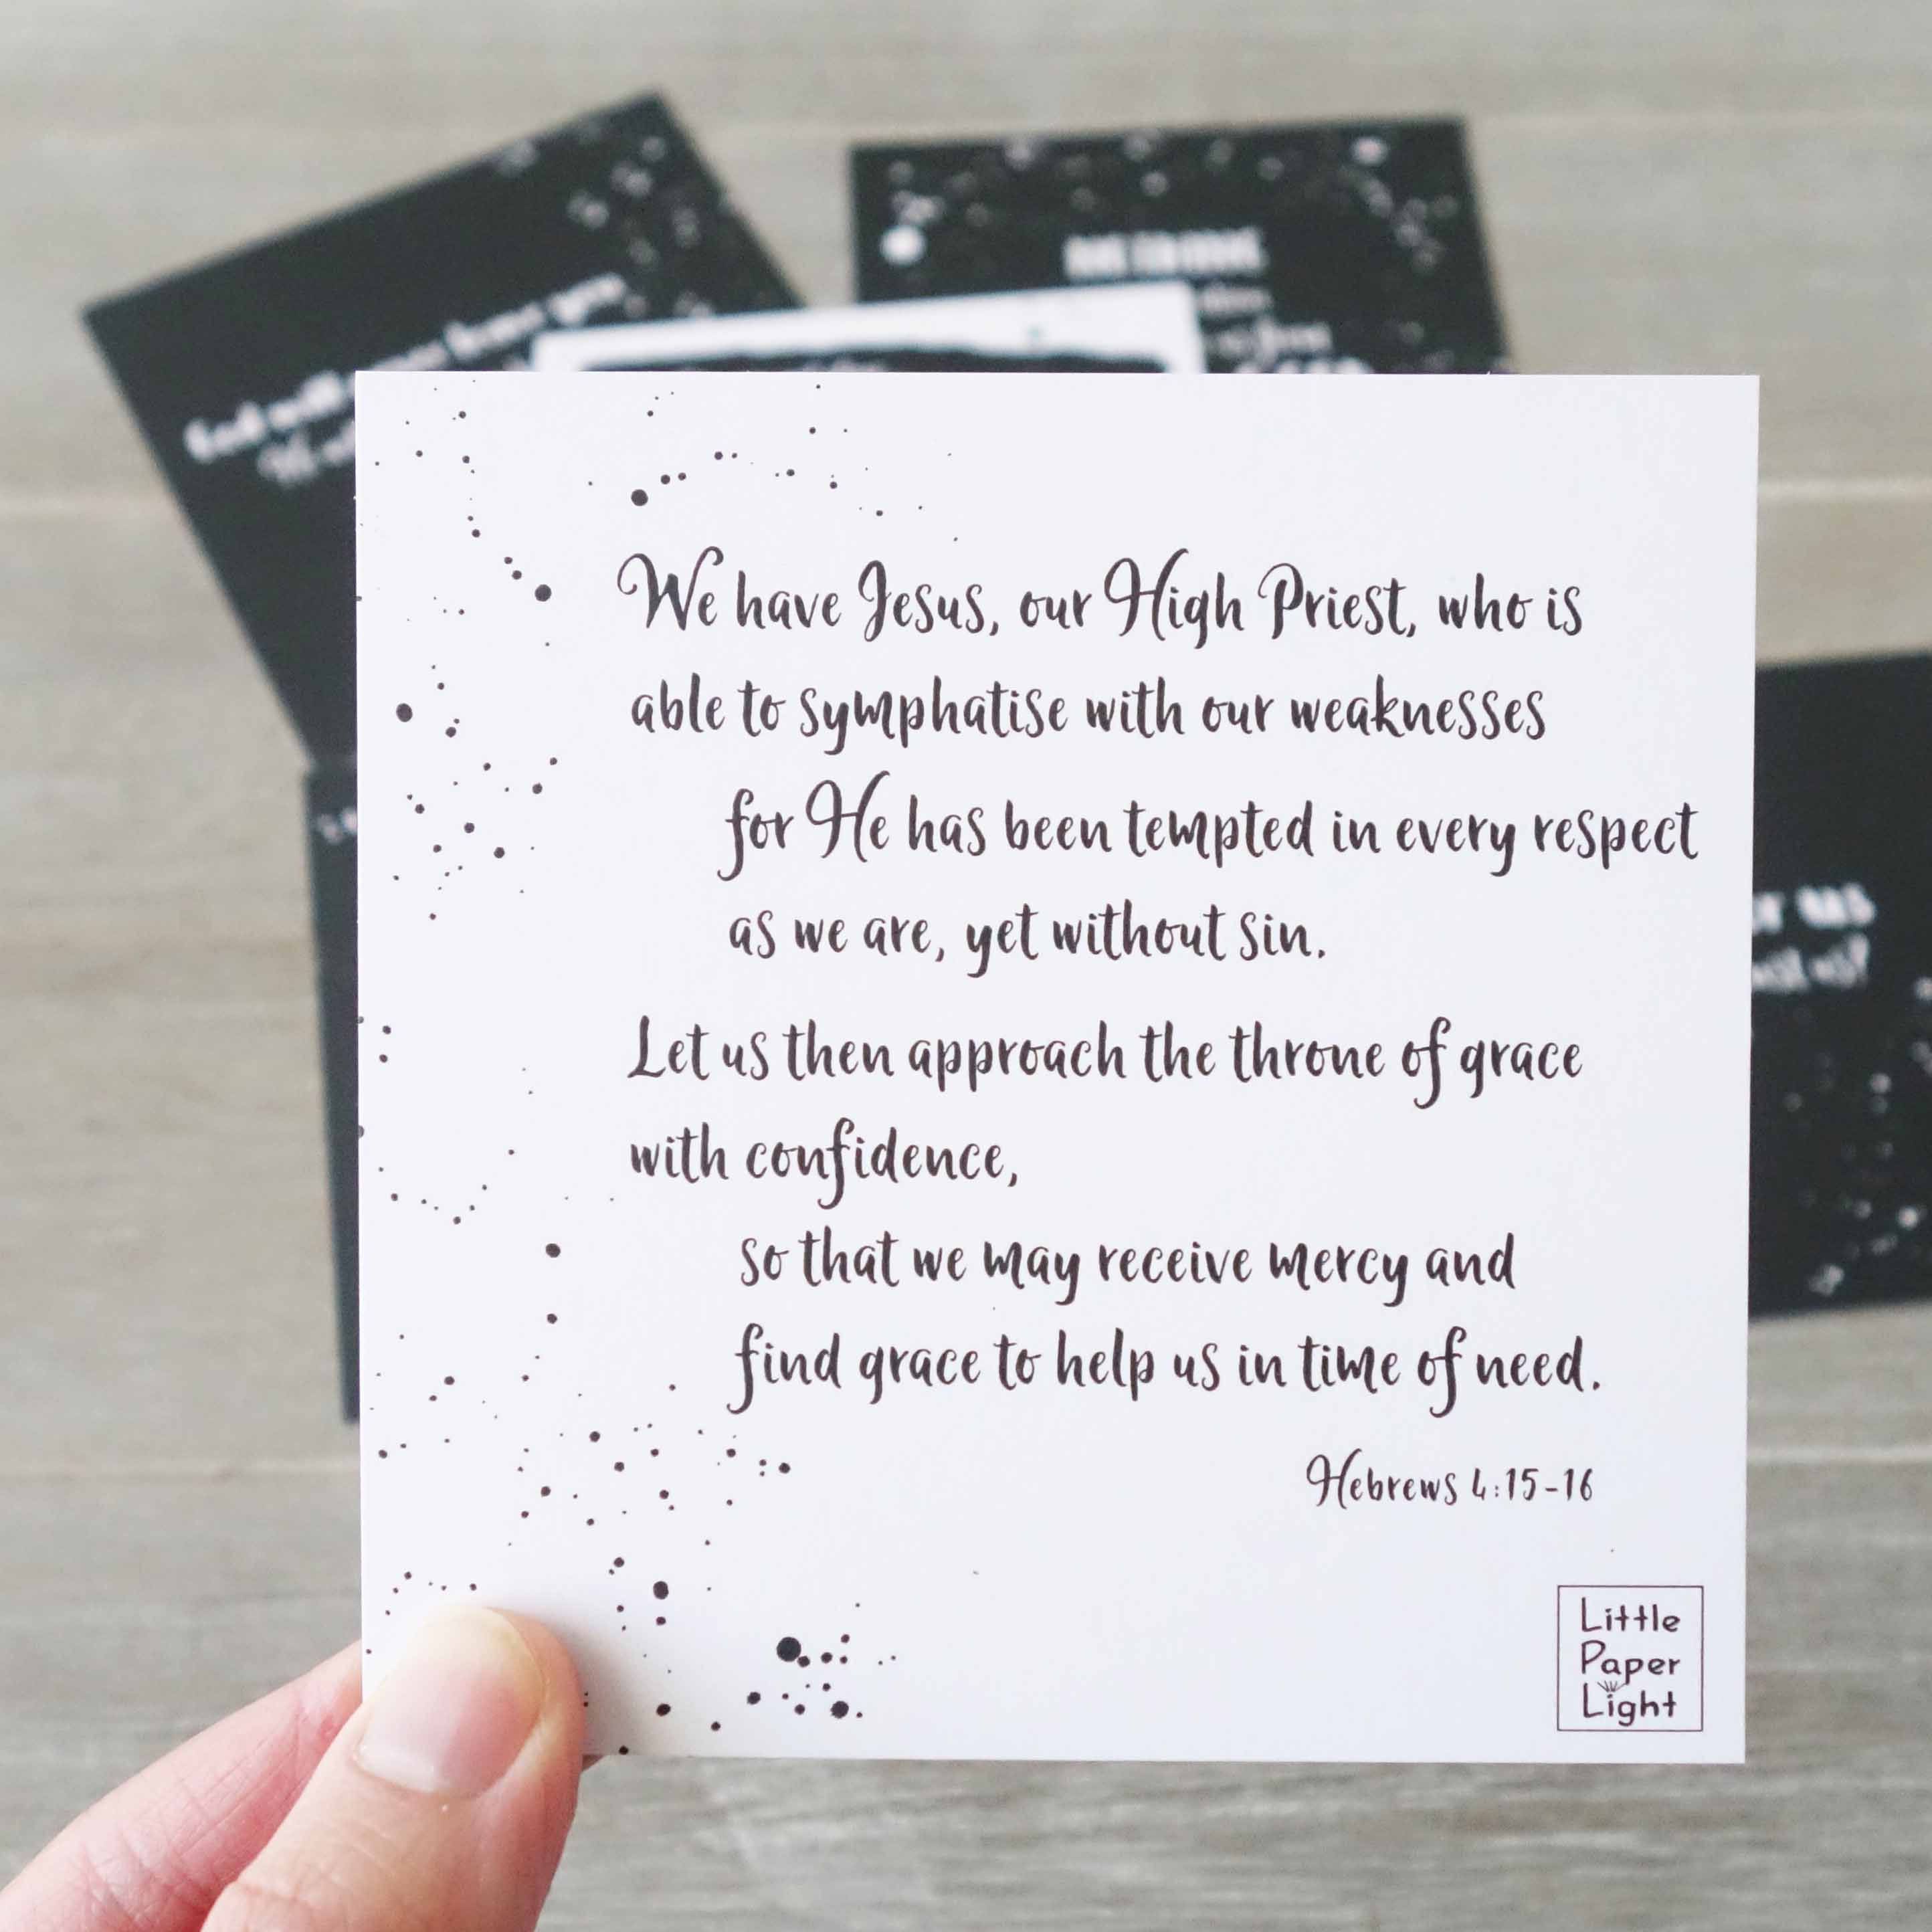 We have Jesus, our High Priest, who is
able to symphatise with our weaknesses
for He has been tempted in every respect
as we are, yet without sin.
Let us then approach the throne of grace
with confidence,
so that we may receive mercy and
find grace to help us in time of need.
Hebrews 4:15-16
Little
Paper
Light